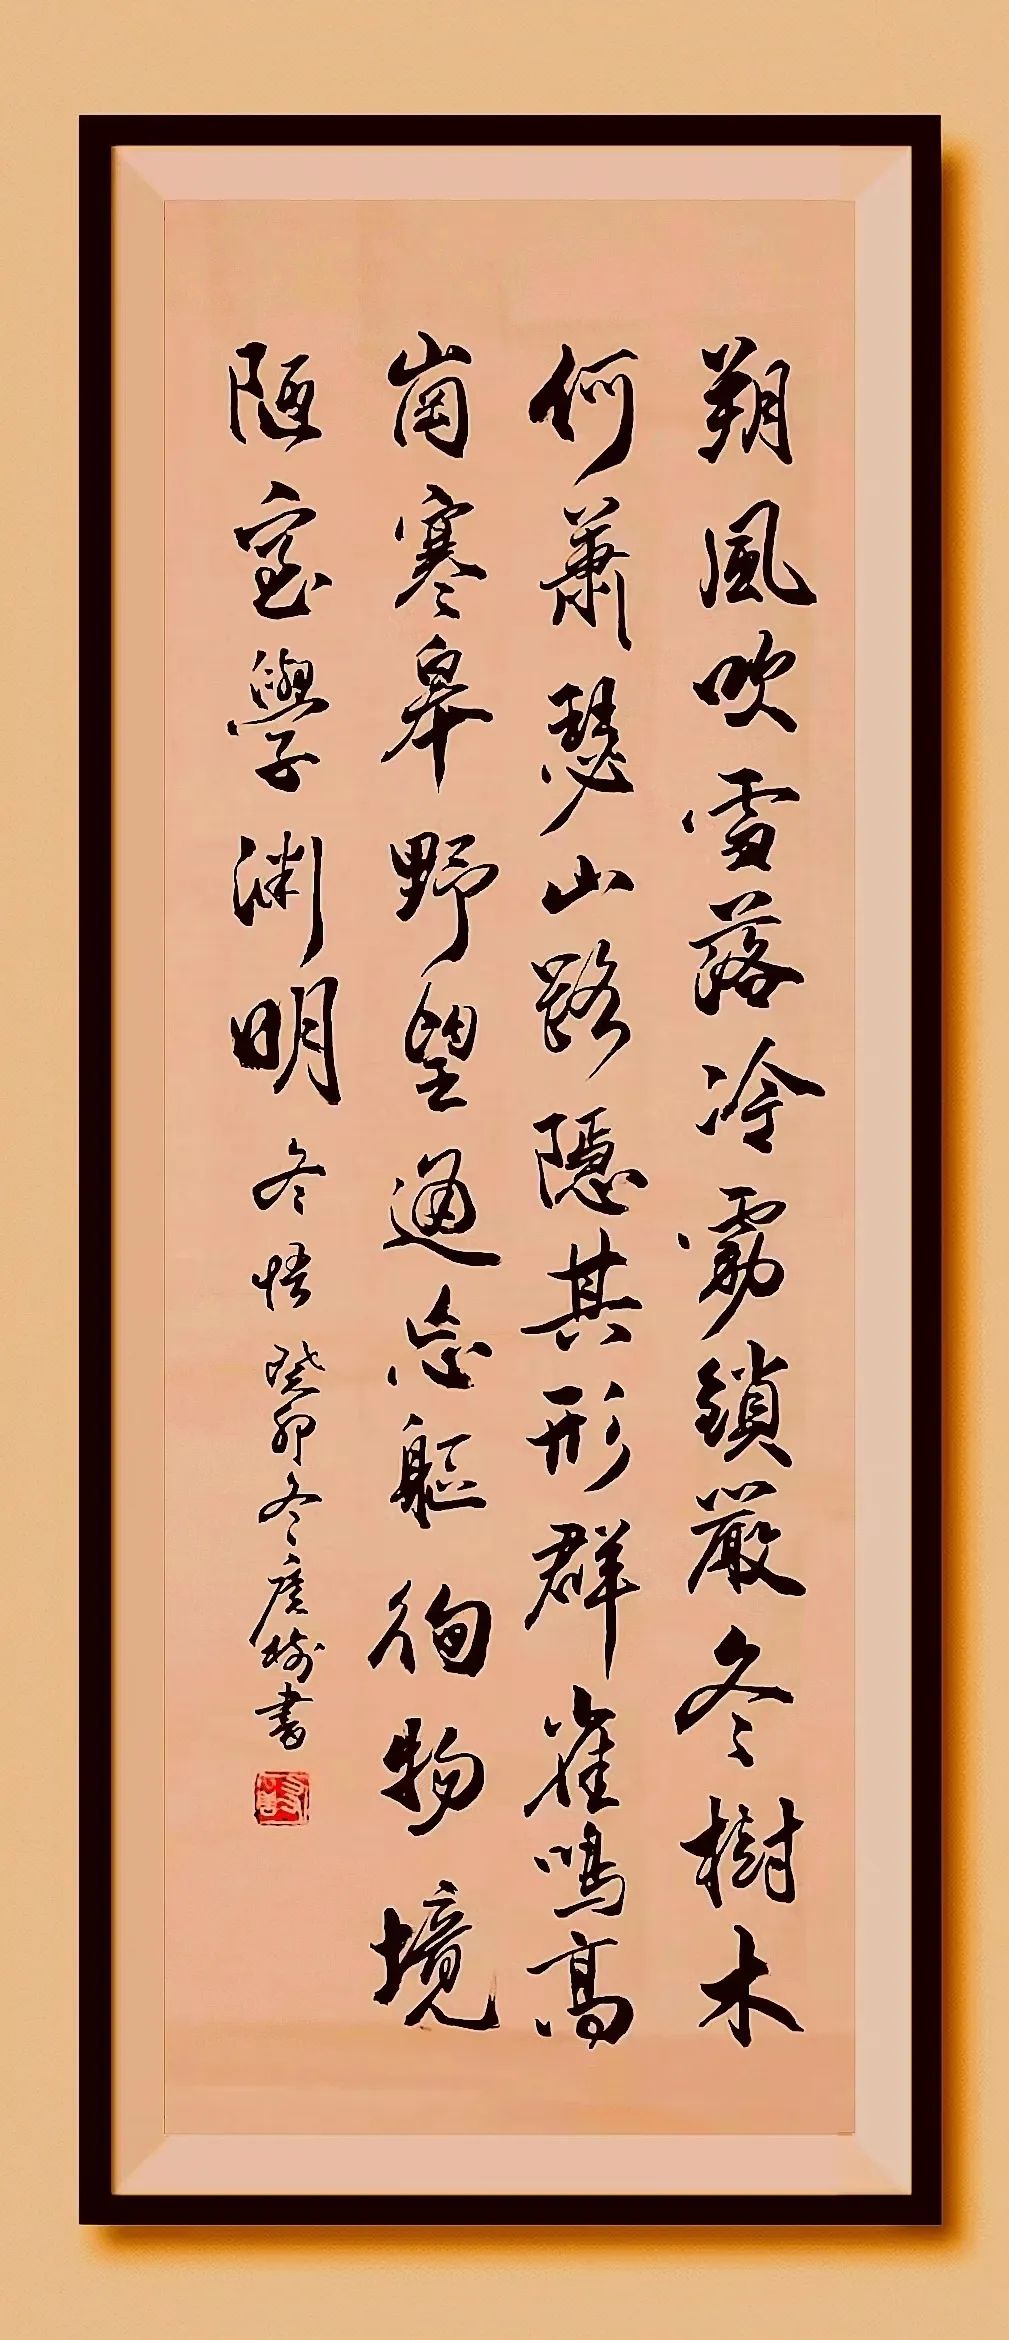 朔風吹雪落冷霧鎖嚴冬樹木
何蕭瑟山路隱其形群雀鳴高
崗寒皋野望通忘軀徇物境
陋室學渊明 冬悟 癸卯冬廣樹書